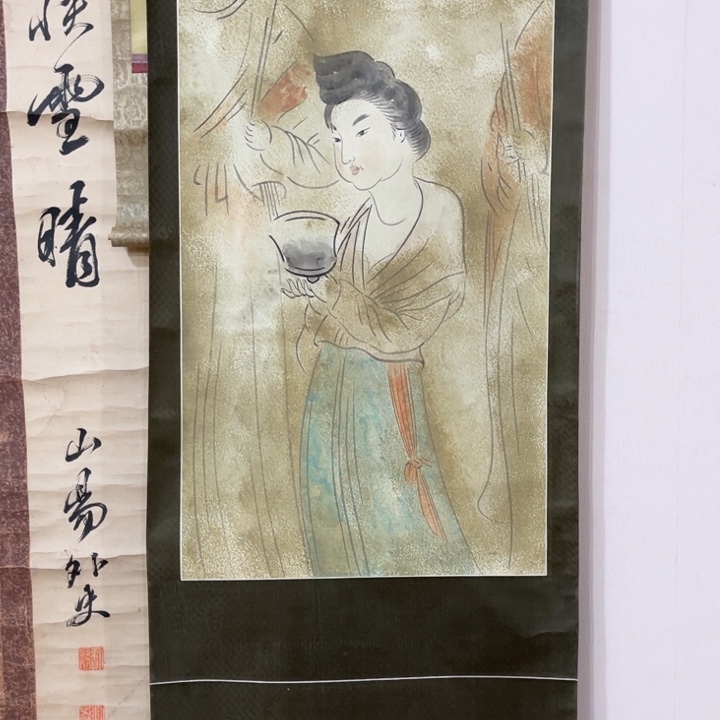 雪晴
山陽外史